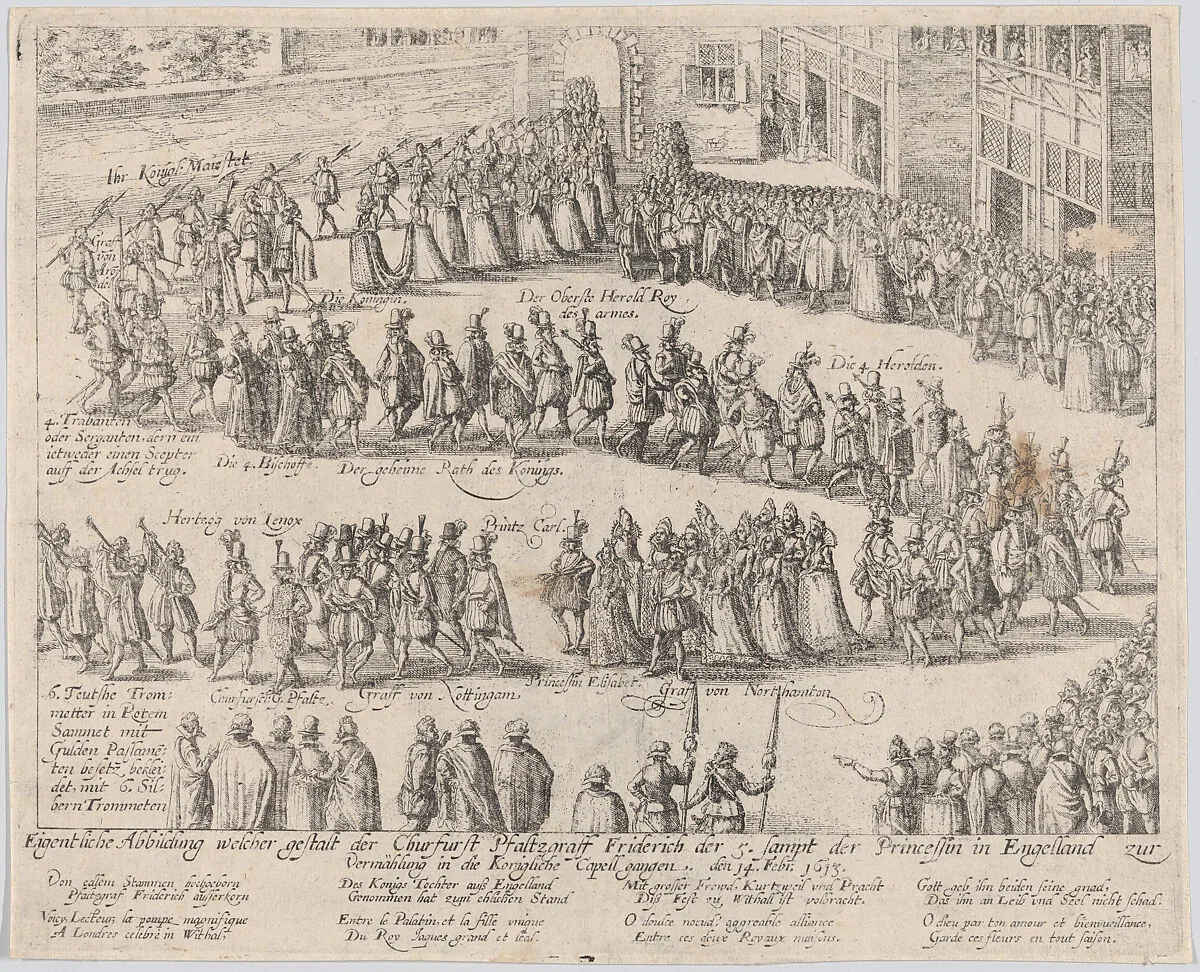 Ihr Königl. Maiestet
Graff
von
Die Königin.
Der Oberste Herold Roy
des armes.
Die 4 Herolden.
4. Trabanten
oder Serganten, dern ein
ietweder einen Scepter
auff der Achsel trug.
Die 4. Bischoffe.
Der geheime Rath des Konings.
Hertzog von Lenox
Printz Carl.
6. Teutshe Trom:
metter in Rotem
Sammet mit
Gulden Passame:
ten besetz, beklei:
det, mit 6. Sil:
bern Trommeten
Churfürst. G. Pfaltz.
Graff von Nottingam
Princessin Elisabet.
Graff von Northamton
Eigentliche Abbildung welcher gestalt der Churfürst Pfaltzgraff Friderich der 5. sampt der Princessin in Engelland zur
Vermählung in die Königliche Capell gangen. den 14. Febr. 1613.
Von edlem Stammen hochgeborn
Pfaltzgraf Friderich außerkorn
Des Königs Tochter auß Engelland
Genommen hat zum ehlichen Stand
Mit grosser Frewd, Kurtzweil vnd Pracht
Diß Fest zu Withall ist volbracht.
Gott geb ihn beiden seine gnad,
Das ihn an Leib vnd Seel nicht schad.
Voicy, Lecteur, la pompe magnifique
A Londres celebré in Withal,
Entre le Palatin, et la fille vnique
Du Roy Jaques grand et leal.
O doulce noeud, aggreable alliance
Entre ces deux Royaux maisons.
O dieu par ton amour et bienvueillance,
Garde ces fleurs en tout saison.